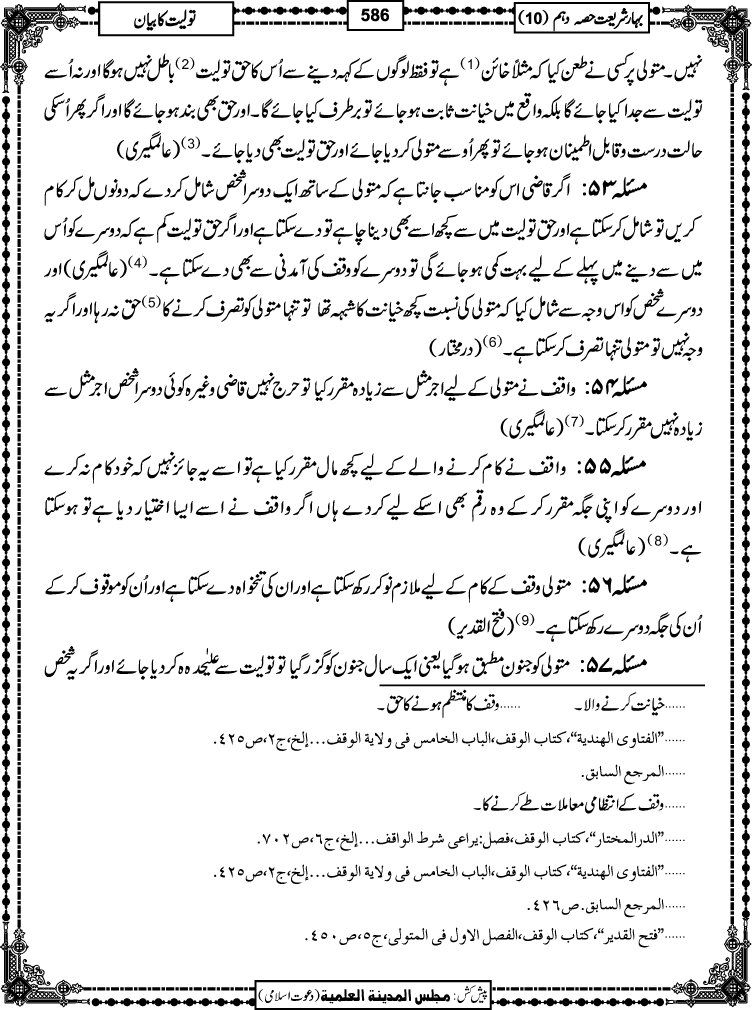 بہار شریعت حصہ دہم (10)
586
تولیت کا بیان
نہیں۔ متولی پر کسی نے طعن کیا کہ مثلاً خائن (1) ہے تو فقط لوگوں کے کہہ دینے سے اُس کا حق تولیت (2) باطل نہیں ہوگا اور نہ اُسے
تولیت سے جدا کیا جائے گا بلکہ واقع میں خیانت ثابت ہو جائے تو برطرف کیا جائے گا۔ اور حق بھی بند ہو جائے گا اور اگر پھر اُسکی
حالت درست و قابل اطمینان ہو جائے تو پھر اُو سے متولی کر دیا جائے اور حق تولیت بھی دیا جائے۔ (3) (عالمگیری)
مسئلہ ۵۳: اگر قاضی اس کو مناسب جانتا ہے کہ متولی کے ساتھ ایک دوسرا شخص شامل کر دے کہ دونوں مل کر کام
کریں تو شامل کر سکتا ہے اور حق تولیت میں سے کچھ اسے بھی دینا چاہے تو دے سکتا ہے اور اگر حق تولیت کم ہے کہ دوسرے کو اُس
میں سے دینے میں پہلے کے لیے بہت کمی ہو جائے گی تو دوسرے کو وقف کی آمدنی سے بھی دے سکتا ہے۔ (4) (عالمگیری) اور
دوسرے شخص کو اس وجہ سے شامل کیا کہ متولی کی نسبت کچھ خیانت کا شبہہ تھا تو تنہا متولی کو تصرف کرنے کا (5) حق نہ رہا اور اگر یہ
وجہ نہیں تو متولی تنہا تصرف کر سکتا ہے۔ (6) (درمختار)
مسئلہ ۵۴: واقف نے متولی کے لیے اجر مثل سے زیادہ مقرر کیا تو حرج نہیں قاضی وغیرہ کوئی دوسرا شخص اجر مثل سے
زیادہ نہیں مقرر کر سکتا۔ (7) (عالمگیری)
مسئلہ ۵۵: واقف نے کام کرنے والے کے لیے کچھ مال مقرر کیا ہے تو اسے یہ جائز نہیں کہ خود کام نہ کرے
اور دوسرے کو اپنی جگہ مقرر کر کے وہ رقم بھی اسکے لیے کر دے ہاں اگر واقف نے اسے ایسا اختیار دیا ہے تو ہو سکتا
ہے۔ (8) (عالمگیری)
مسئلہ ۵۶: متولی وقف کے کام کے لیے ملازم نوکر رکھ سکتا ہے اور ان کی تنخواہ دے سکتا ہے اور اُن کو موقوف کر کے
اُن کی جگہ دوسرے رکھ سکتا ہے۔ (9) (فتح القدیر)
مسئلہ ۵۷: متولی کو جنون مطبق ہو گیا یعنی ایک سال جنون کو گزر گیا تو تولیت سے علیحدہ کر دیا جائے اور اگر یہ شخص
......خیانت کرنے والا۔ ......وقف کا منتظم ہونے کا حق۔
......”الفتاوی الھندیة“، کتاب الوقف، الباب الخامس فی ولایة الوقف...إلخ، ج۲، ص۴۲۵.
......المرجع السابق.
......وقف کے انتظامی معاملات طے کرنے کا۔
......”الدرالمختار“، کتاب الوقف، فصل: یراعی شرط الواقف...إلخ، ج٦، ص۷۰۲.
......”الفتاوی الھندیة“، کتاب الوقف، الباب الخامس فی ولایة الوقف...إلخ، ج۲، ص۴۲۵.
......المرجع السابق. ص۴۲٦.
......”فتح القدیر“، کتاب الوقف، الفصل الاول فی المتولی، ج۵، ص۴۵۰.
پیش کش: مجلس المدینة العلمیة (دعوت اسلامی)